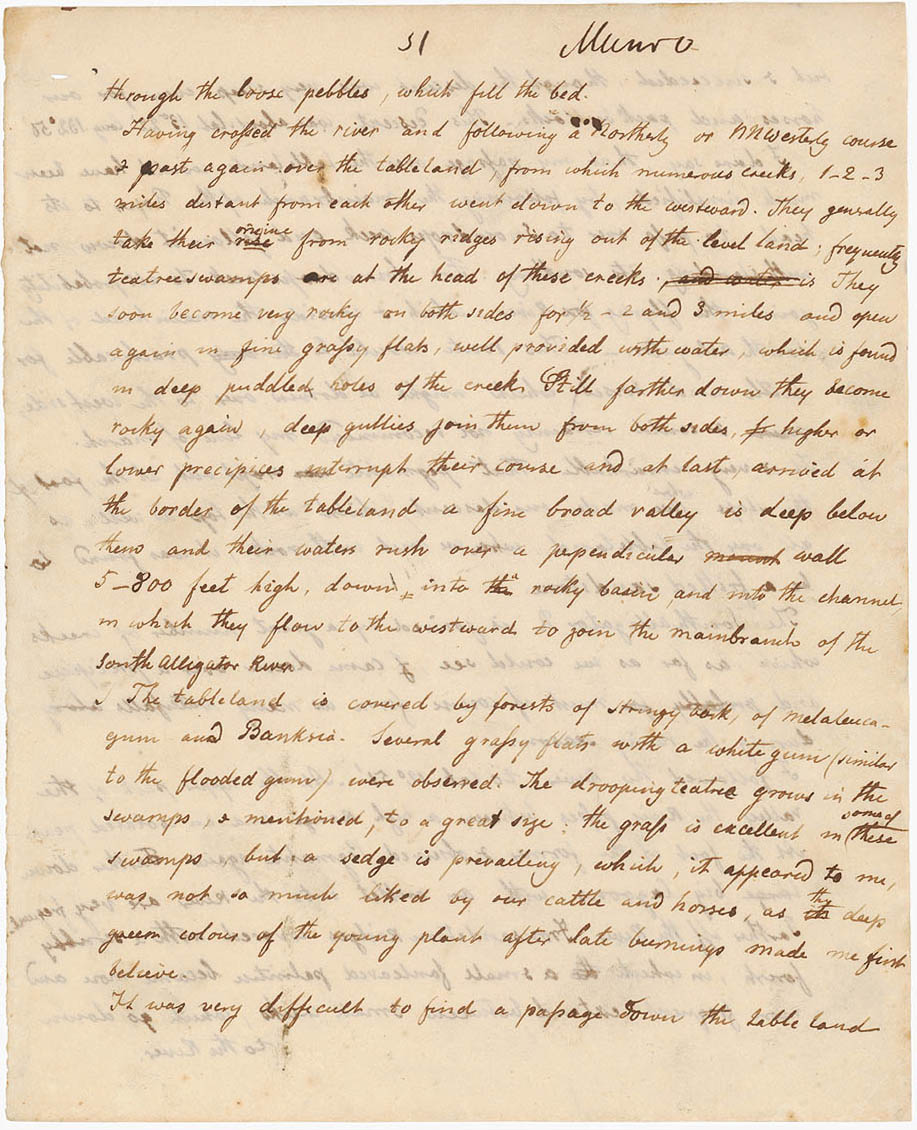 31 Munro
through the loose pebbles, which fill the bed.
Having crossed the river and following a Northerly or NNWesterly course
I past again over the tableland, from which numerous creeks, 1-2-3
miles distant from each other went down to the westward. They generally
take their rise origine from rocky ridges rising out of the level land; frequently
teatreeswamps are at the head of these creeks. and water is They
soon become very rocky on both sides for 1/2 - 2 and 3 miles and open
again in fine grassy flats, well provided with water, which is found
in deep puddled holes of the creek. Still farther down they become
rocky again, deep gullies join them from both sides, higher or
lower precipices interrupt their course and at last, arrived at
the border of the tableland a fine broad valley is deep below
them and their waters rush over a pependicular wall
5-800 feet high, down, into rocky basin, and into the channel,
in which they flow to the westward to join the mainbranch of the
South Alligator River
The tableland is covered by forests of stringy bark, of melaleuca-
gum and Banksia. Several grassy flats with a white gum (similar
to the flooded gum) were observed. The drooping teatree grows in the
swamps, mentioned, to a great size: the grass is excellent in some of these
swamps, but a sedge is prevailing, which, it appeared to me,
was not so much liked by our cattle and horses, as the deep
green colour of the young plant after late burnings made me first
believe.
It was very difficult to find a passage down the table land